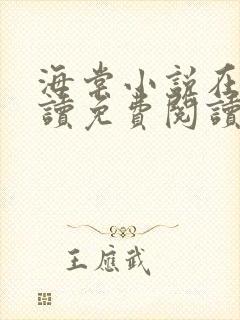 海棠小說在
讀免費閱讀
王應武